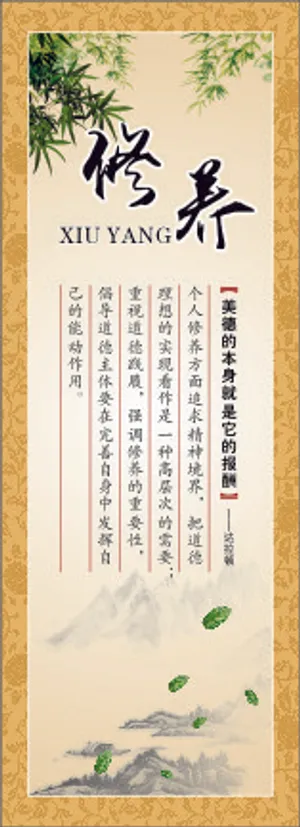 修养
XIU YANG
【美德的本身就是它的报酬】
——达拉顿
个人修养方面追求精神境界，把道德
理想的实现看作是一种高层次的需要；
重视道德践履，强调修养的重要性，
倡导道德主体要在完善自身中发挥自
己的能动作用。